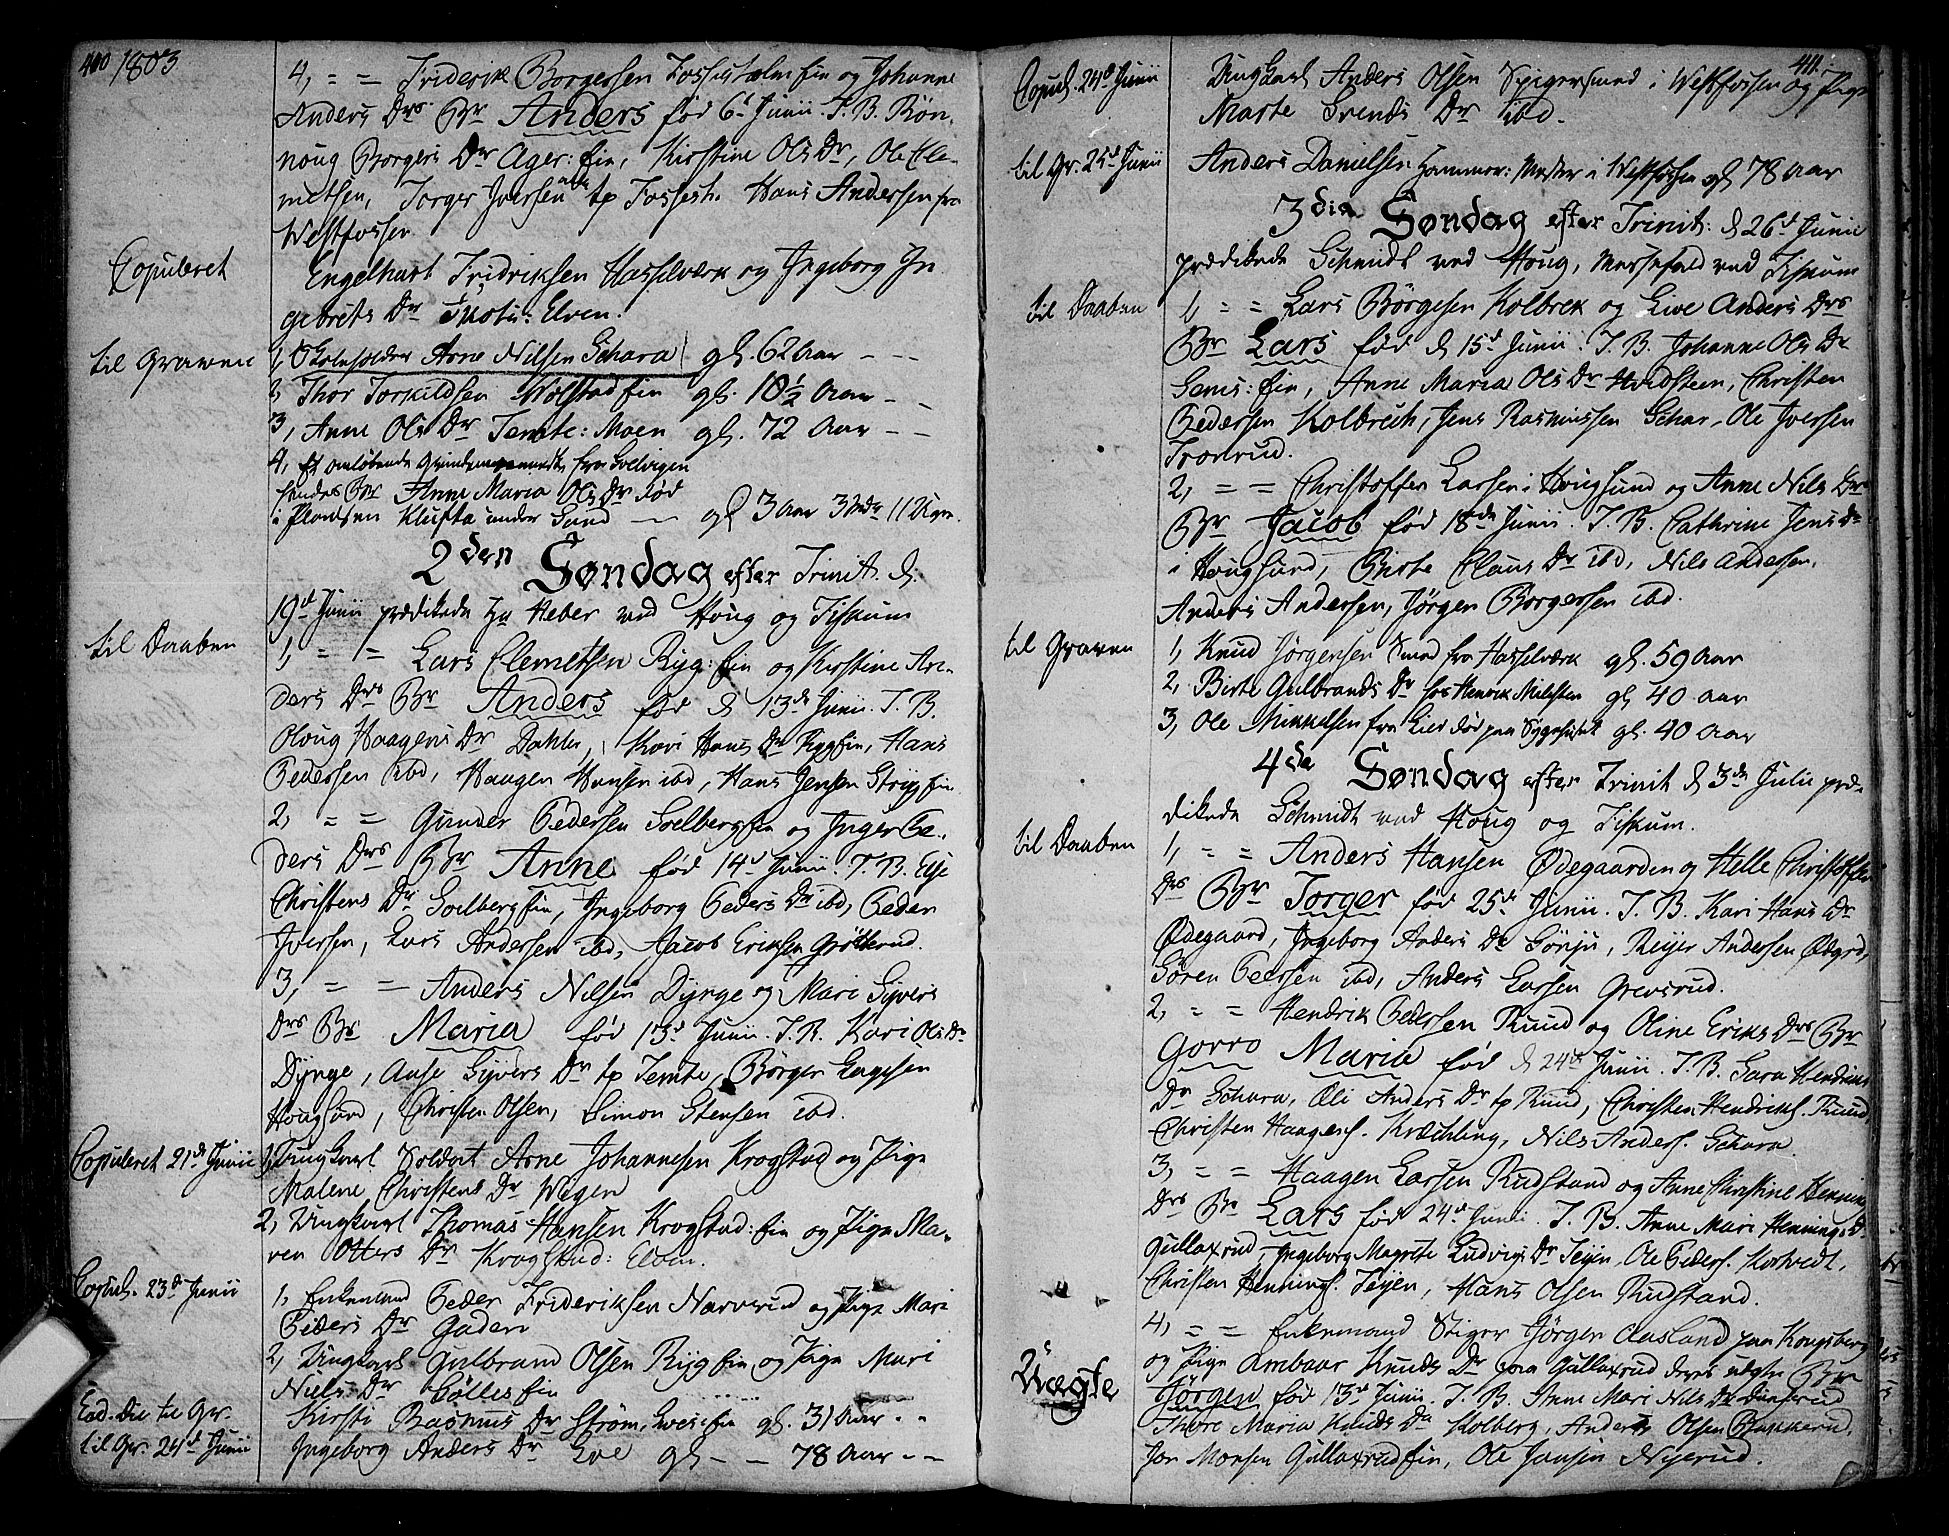 410 1803
4, = = Friderik Borgersen Fossesholm fin og Johanne
Anders Drs. Br Anders fød 6t Junii. T. B. Røn,
noug Borgers Dr Ager: fin, Kirstine Ols Dr, Ole Cle-
metsen, Torger Iversen tp Fossesh. Hans Andersen fra
Westfossen
Copuleret
Engelhart Fridriksen Hasselværk og Ingeborg In
gebrets Dr Skots: Elven.
til Graven
1, Skoleholder Arne Nilsen Schara gl. 62 Aar - - -
2 Thor Torkildsen Wolstad fin gl. 18 1/2 Aar - -
3, Anne Ols Dr Temte: Moen gl. 72 Aar - -
4, Et omløbende fra Svelvigen
hendes Br Anne Maria Ols Dr død
i Pladsen Klufta under Sand - gl 3 Aar 3 Mdr 11 Uger.
2den Søndag efter Trinit. d.
19d Junii prædikede Hr Heber ved Houg og Fiskum
til Daaben
1, = = Lars Clemetsen Ryg: fin og Kirstine An-
ders Drs Br Anders fød d 13de Junii. T. B.
Oloug Haagens Dr Dahler, Kari Hans Dr Ryg fin, Hans
Pedersen ibd, Haagen Hansen ibd, Hans Jensen Stryg fin
2, = = Gunder Pedersen Solberg fin og Inger Pe-
ders Drs Br Anne fød 14d Junii. T. B. Else
Christens Dr Solberg fin, Ingeborg Peders Dr ibd, Peder
Iversen, Lars Andersen ibd, Jacob Eriksen Grøtterud.
3, = = Anders Nilsen Dynge og Mari Syvers
Drs Br Maria fød 13d Junii. T. B. Kari Ols Dr
Dynge, Aase Syvers Dr tp Temte, Børger Engesen
Hougsund, Christen Olsen, Simon Stensen ibd.
Copuleret 21de Junii
1, Ungkarl Soldat Arne Johannesen Krogstad og Pige
Malene Christens Dr Wegen
2, Ungkarl Thomas Hansen Krogstad: fin og Pige Ma-
ren Otters Dr Krogstad: Elven.
Copul. 23de Junii
1, Enkemand Peder Frideriksen Narverud og Pige Mari
Peders Dr Gaden
2, Ungkarl Gulbrand Olsen Ryg fin og Pige Mari
Niels Dr Bølles fin
Eod. die til Gr.
Kirsti Rasmus Dr Strøm, fin gl. 31 Aar - -
til Gr. 24d Junii
Ingeborg Anders Dr Loe gl - - 78 Aar - -
411.
Copul. 24d Junii
Ungkarl Anders Olsen Spigersmed i Westfossen og Pige
Marte Svends Dr ibd.
til Gr. 25d Junii
Anders Danielsen Hammer: Mester i Westfossen gl 78 Aar
3die Søndag efter Trinit: d 26d Junii
prædikede Schmidt ved Houg, Messefald ved Fiskum
til Daaben
1, = = Lars Børgesen Kolbrek og Live Anders Drs
Br Lars fød d 15d Junii. T. B. Johanne Ols Dr
Sems: fin, Anne Maria Ols Dr Hvidsteen, Christen
Pedersen Kolbrech, Jens Rasmussen Schar, Ole Iversen
Tronrud.
2, = = Christoffer Larsen i Hougsund og Anne Nils Drs
Br Jacob fød 18de Junii. T. B. Cathrine Jens Dr
i Hougsund, Birte Claus Dr ibd, Nils Andersen,
Anders Andersen, Jørgen Borgersen ibd.
til Graven
1, Knud Jørgensen Smed fra Hasselværk gl. 59 Aar
2, Birte Gulbrands Dr hos Henrik Milesten gl 40 aar
3, Ole Mikkelsen fra Lier død paa Sygehuset gl. 40 Aar
4de Søndag efter Trinit d 3de Julii præ-
dikede Schmidt ved Houg og Fiskum.
til Daaben
1, = = Anders Hansen Ødegaarden og Helle Christoffers
Drs Br Torger fød 25de Junii. T. B. Kari Hans Dr
Ødegaard, Ingeborg Anders Dr Sønju, Reyer Andersen Ødgrd,
Søren Peersen ibd, Anders Larsen Grevsrud.
2, = = Hendrik Pedersen Ruud og Oline Eriks Drs Br
Gorro Maria fød d 24de Junii. T. B. Sara Hendriks
Dr Schara, Eli Anders Dr tp Ruud, Christen Hendriks. Ruud,
Christen Haages. Krechling, Nils Anders. Schara.
3, = = Haagen Larsen Rudstand og Anne Kirstine Henning
Drs Br Lars fød 24d Junii. T. B. Anne Mari Hennings Dr
Gullaxrud, Ingeborg Magrete Ludvigs Dr Teyen, Ole Peders. Kortvedt,
Christen Hennings. Teyen, Hans Olsen Rudstand.
Uægte
4, = = Enkemand Stiger Jørgen Aasland paa Kongsberg
og Pige Ambaar Knuds Dr paa Gullaxrud deres uægte Br
Jørgen fød 13d Junii. T. B. Anne Mari Nils Dr
Thore Maria Knuds Dr Kolberg, Anders Olsen Bakkerud,
Jon Monsen Gullaxrud fin, Ole Jansen Nyerud.